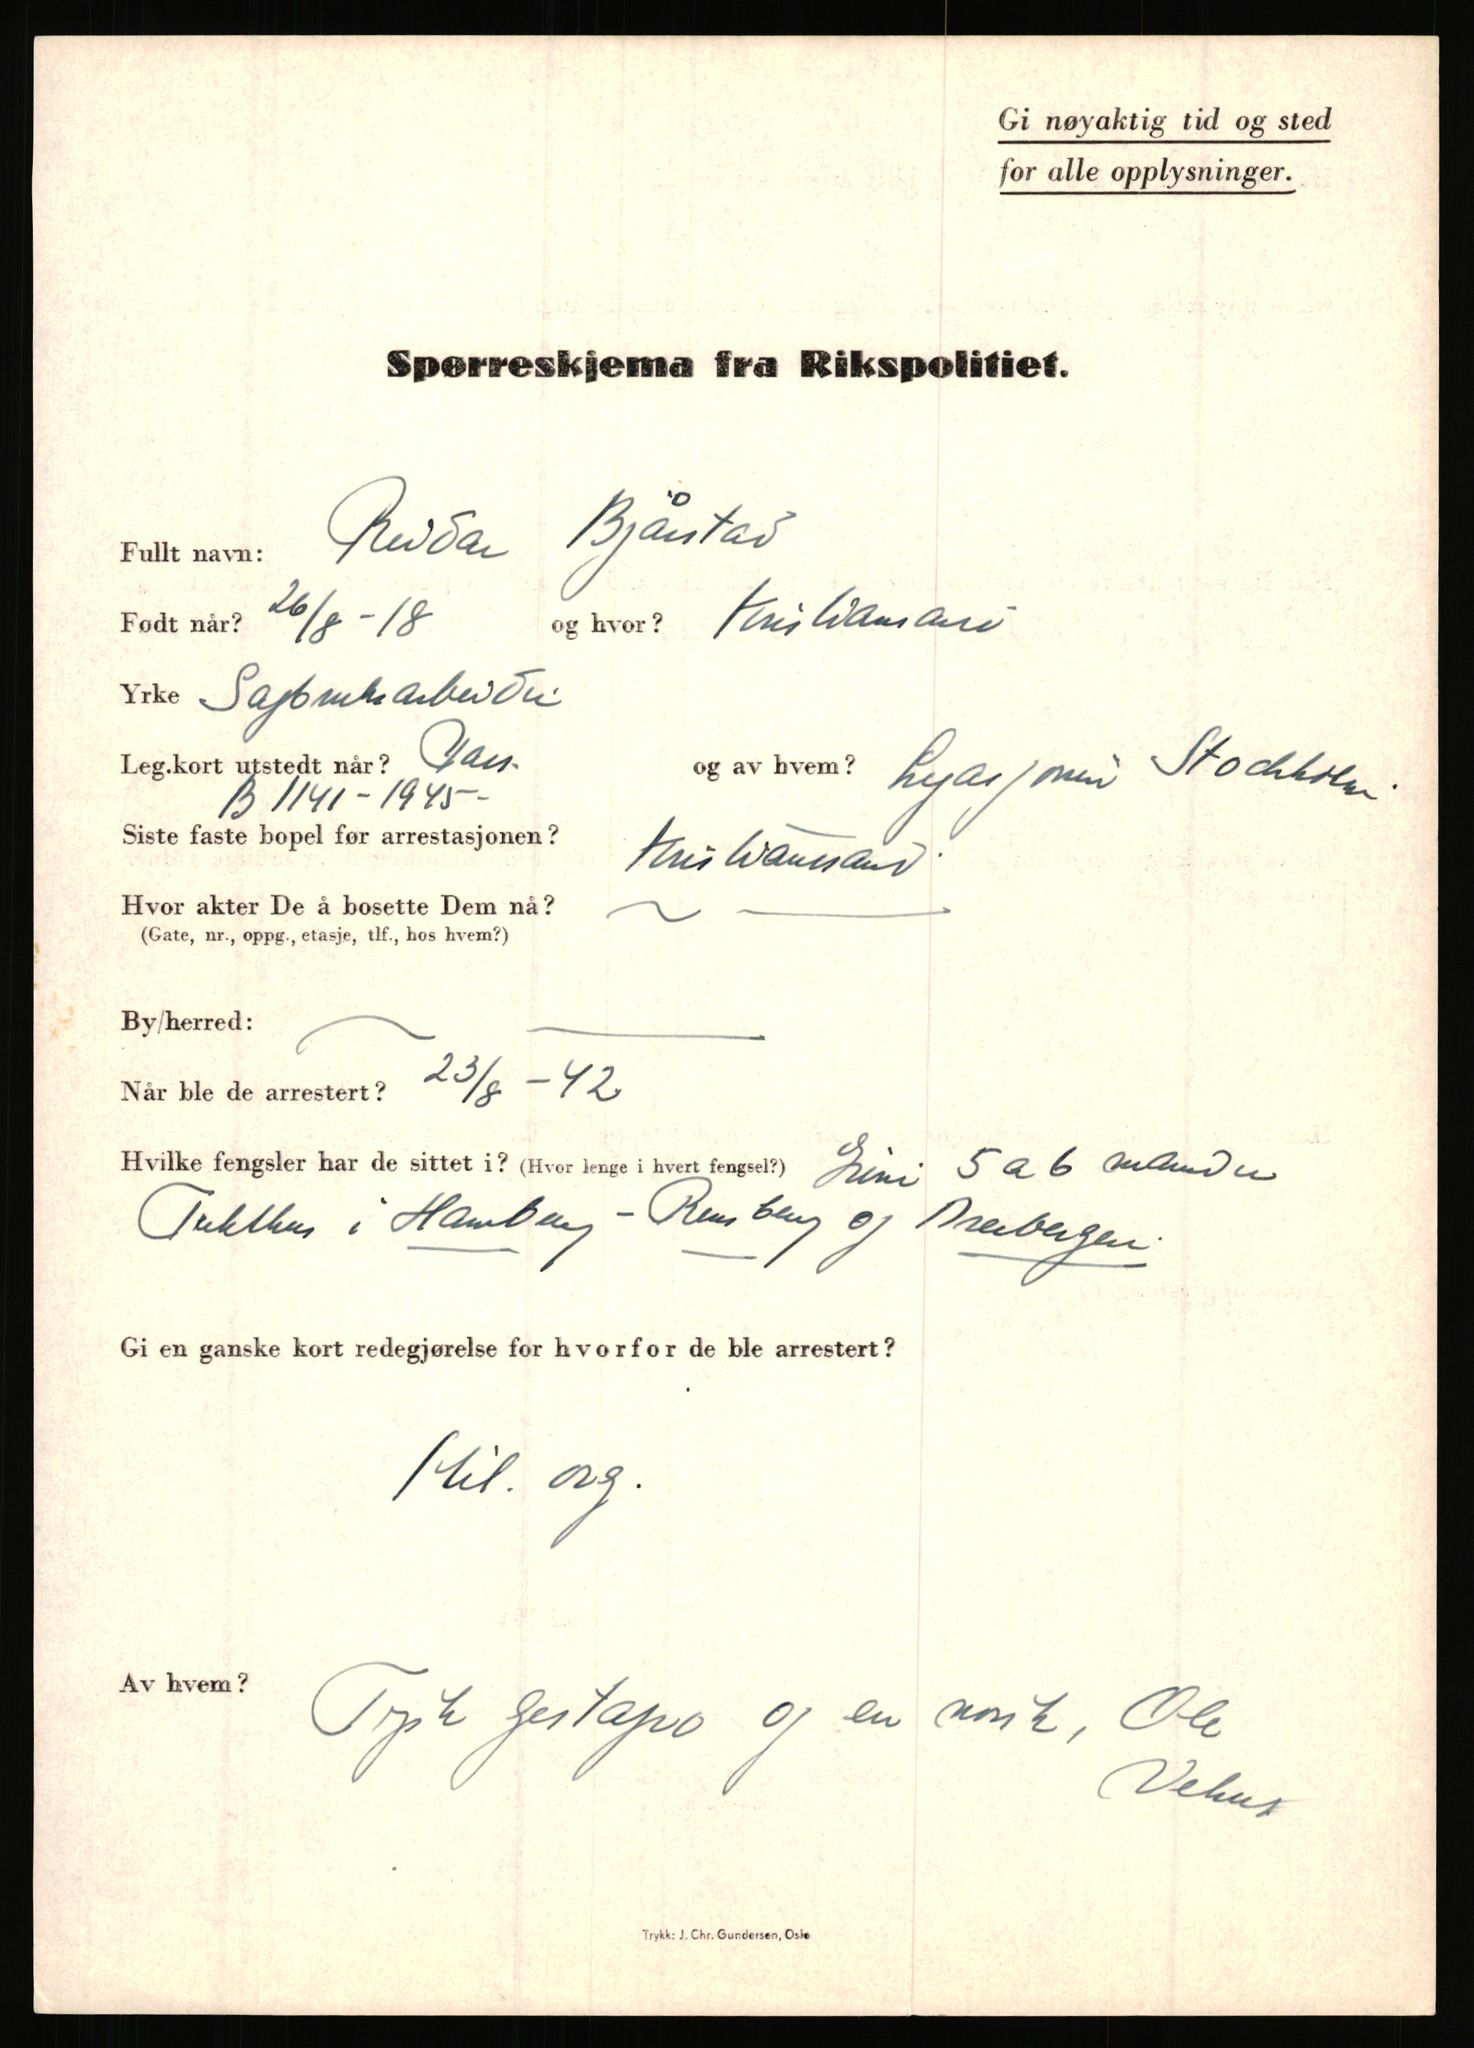 Gi nøyaktig tid og sted
for alle opplysninger.
Spørreskjema fra Rikspolitiet.
Fullt navn: Reidar Bjårstad
Født når? 26/8 - 18 og hvor? Kristiansand
Yrke Sagbruksarbeider
Leg.kort utstedt når? Pass. og av hvem? Legasjonen Stockholm.
B 1141 - 1945 -
Siste faste bopel før arrestasjonen? Kristiansand.
Hvor akter De å bosette Dem nå? ~ —
(Gate, nr., oppg., etasje, tlf., hos hvem?)
By/herred: ~ —
Når ble de arrestert? 23/8 - 42
Hvilke fengsler har de sittet i? (Hvor lenge i hvert fengsel?) Grini 5 a 6 måneder
Tukthus i Hamburg - Rensburg og Dreibergen.
Gi en ganske kort redegjørelse for hvorfor de ble arrestert?
Mil. org.
Av hvem? Tysk gestapo og en norsk, Ole
Vehus
Trykk: J. Chr. Gundersen, Oslo